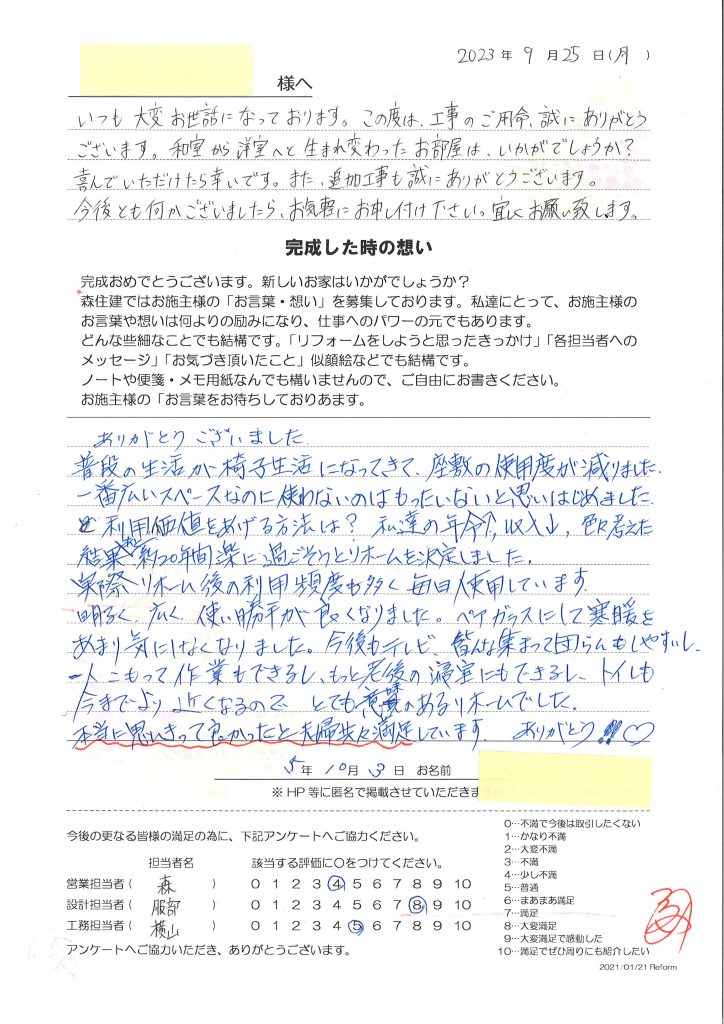 2023年 9月25日(月)
様へ
いつも大変お世話になっております。この度は、工事のご用命、誠にありがとう
ございます。和室から洋室へと生まれ変わったお部屋は、いかがでしょうか?
喜んでいただけたら幸いです。また、追加工事も誠にありがとうございます。
今後とも何かございましたら、お気軽にお申し付け下さい。宜しくお願い致します。
完成した時の想い
完成おめでとうございます。新しいお家はいかがでしょうか?
森住建ではお施主様の「お言葉・想い」を募集しております。私達にとって、お施主様の
お言葉や想いは何よりの励みになり、仕事へのパワーの元でもあります。
どんな些細なことでも結構です。「リフォームをしようと思ったきっかけ」「各担当者への
メッセージ」「お気づき頂いたこと」似顔絵などでも結構です。
ノートや便箋・メモ用紙なんでも構いませんので、ご自由にお書きください。
お施主様の「お言葉をお待ちしておりあます。
ありがとうございました
普段の生活が椅子生活になってきて、座敷の使用度が減りました.
一番広いスペースなのに使わないのはもったいないと思いはじめました.
利用価値をあげる方法は? 私達の年令↑, 収入↓, 色々考えた
結果 約20年間楽に過ごそうとリホームを決定しました.
実際リホーム後の利用頻度も多く毎日使用しています.
明るく、広く、使い勝手が良くなりました。ペアガラスにして寒暖を
あまり気にしなくなりました。今後もテレビ、皆んな集まって団らんもしやすいし、
一人こもって作業もできるし、もっと老後の寝室にもできるし、トイレも
今までより近くなるので とても意義のあるリホームでした.
本当に思いきって良かったと夫婦共々満足しています ありがとう!!♡
5年10月3日 お名前
※HP等に匿名で掲載させていただきま
今後の更なる皆様の満足の為に、下記アンケートへご協力ください。
担当者名 該当する評価に○をつけてください。
営業担当者( 森 ) 0 1 2 3 4 5 6 7 8 9 10
設計担当者( 服部 ) 0 1 2 3 4 5 6 7 8 9 10
工務担当者( 横山 ) 0 1 2 3 4 5 6 7 8 9 10
アンケートへご協力いただき、ありがとうございます。
0…不満で今後は取引したくない
1…かなり不満
2…大変不満
3…不満
4…少し不満
5…普通
6…まあまあ満足
7…満足
8…大変満足
9…大変満足で感動した
10…満足でぜひ周りにも紹介したい
2021/01/21 Reform